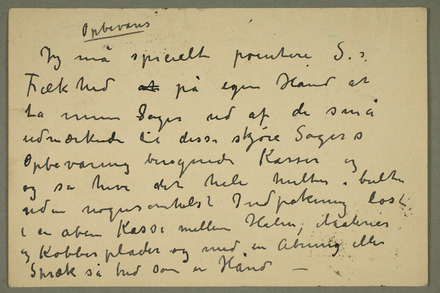 Opbevares
Jeg må specielt pointere S.s
Frækhed at på egen Haand at
ta mine Sager ud af de små
udmærkede til disse skjøre Sagers
Opbevaring beregnede Kasser og
og så hive det hele hulter i bulter
uden nogensomhelst Indpakning løst
i en åben Kasse mellem Halm,
og Kobberplader og med en Åbning eller
Spræk så bred som en Hånd —